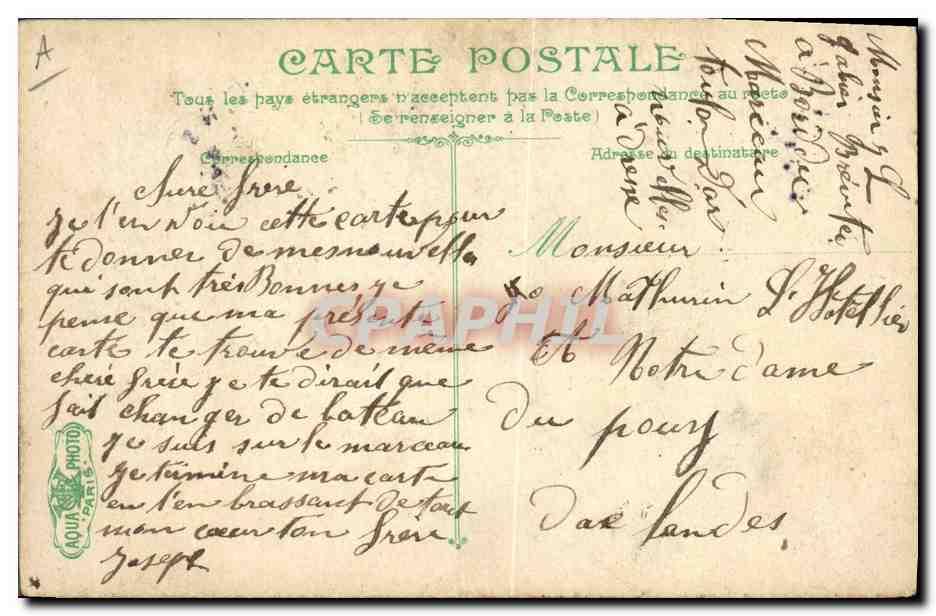 A
CARTE POSTALE
Tous les pays étrangers n'acceptent pas la Correspondance au recto
(Se renseigner à la Poste)
Correspondance
Adresse du destinataire
chere frere
je t'en voie cette carte pour
te donner de mes nouvelles
qui sont très Bonnes je
pense que ma présente
carte te trouve de même
chere frere je te dirait que
jait changer de bateau
je suis sur le marceau
je termine ma carte
en t'en brassant de tout
mon coeur ton frere
Joseph
Monsieur
Mathurin L'Hotellier
A Notre dame
du pour
dae landes
Monsieur
gabier Brèveter
à Bord du
Marceau
toulon Var
nouvelles
adresse
AQUA PHOTO
PARIS
CPAPHIL